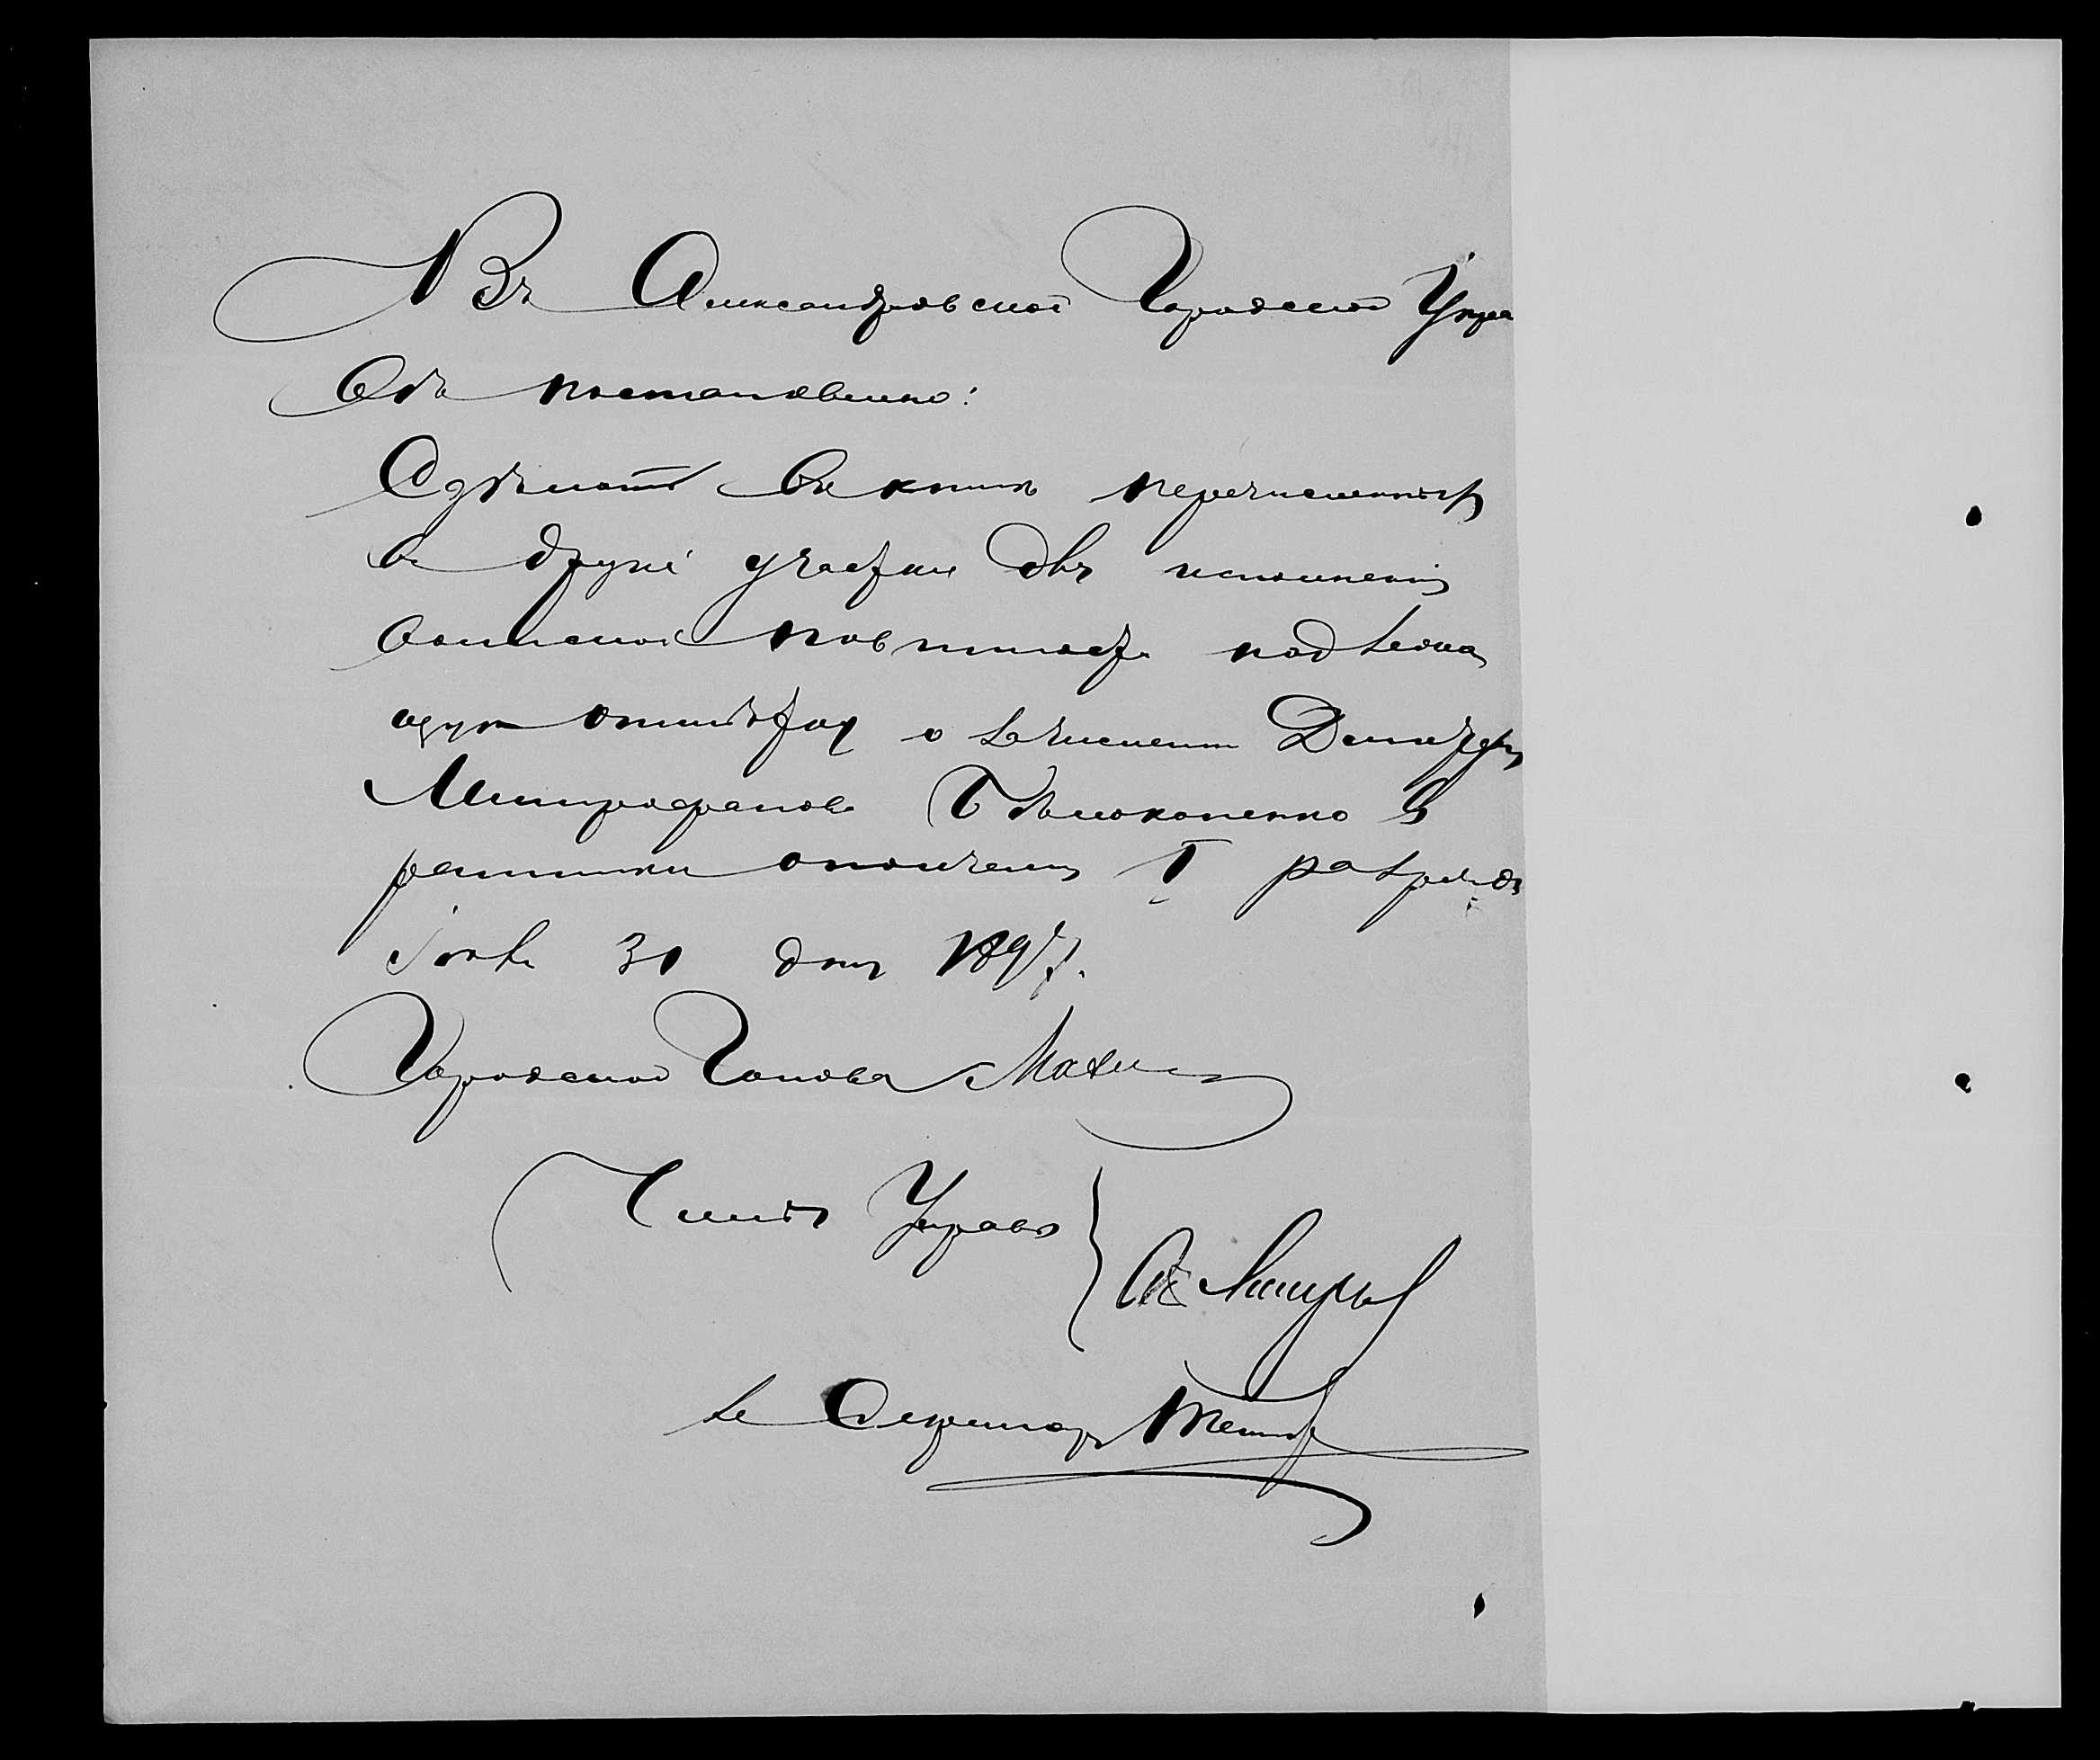 Въ Александровской Городской Упра
вѣ постановлено:
Сдѣлать въ книгѣ перечисленныхъ
въ другіе участки для исполненія
воинской повинности надлежа
щую отмѣтку о зачисленіи Дмитрія
Митрофанова Бѣлоконенко въ
ратники ополченія I разряда
Іюня 30 дня 1897.
Городской Голова
Члены Управы
Секретарь